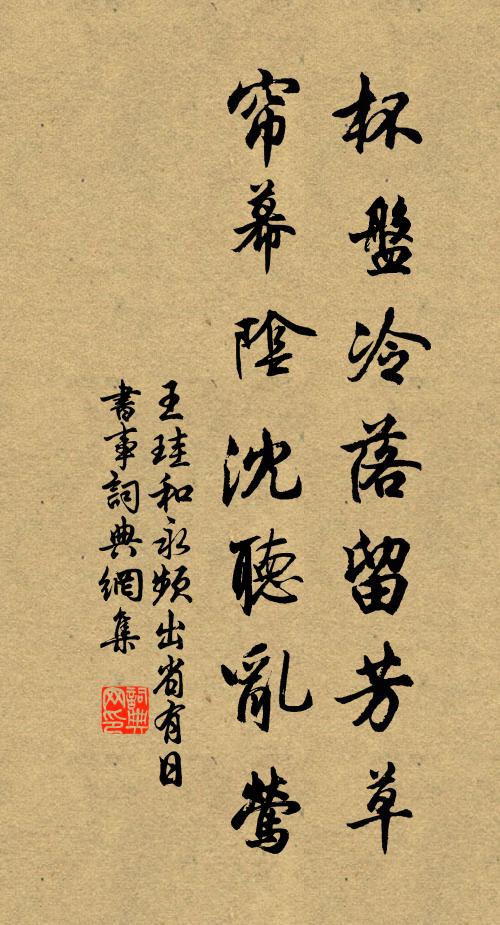 杯盤冷落留芳草
帘幕陰沈聽亂鶯
王珪和永頻出省有日
書事詞典網集
詞典网印